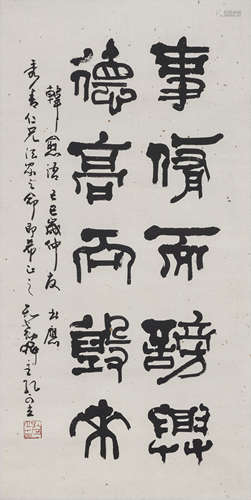 事修而謗興
德高而毀來
韓愈語己巳歲仲夏書應
秀青仁兄法家之命即希正之